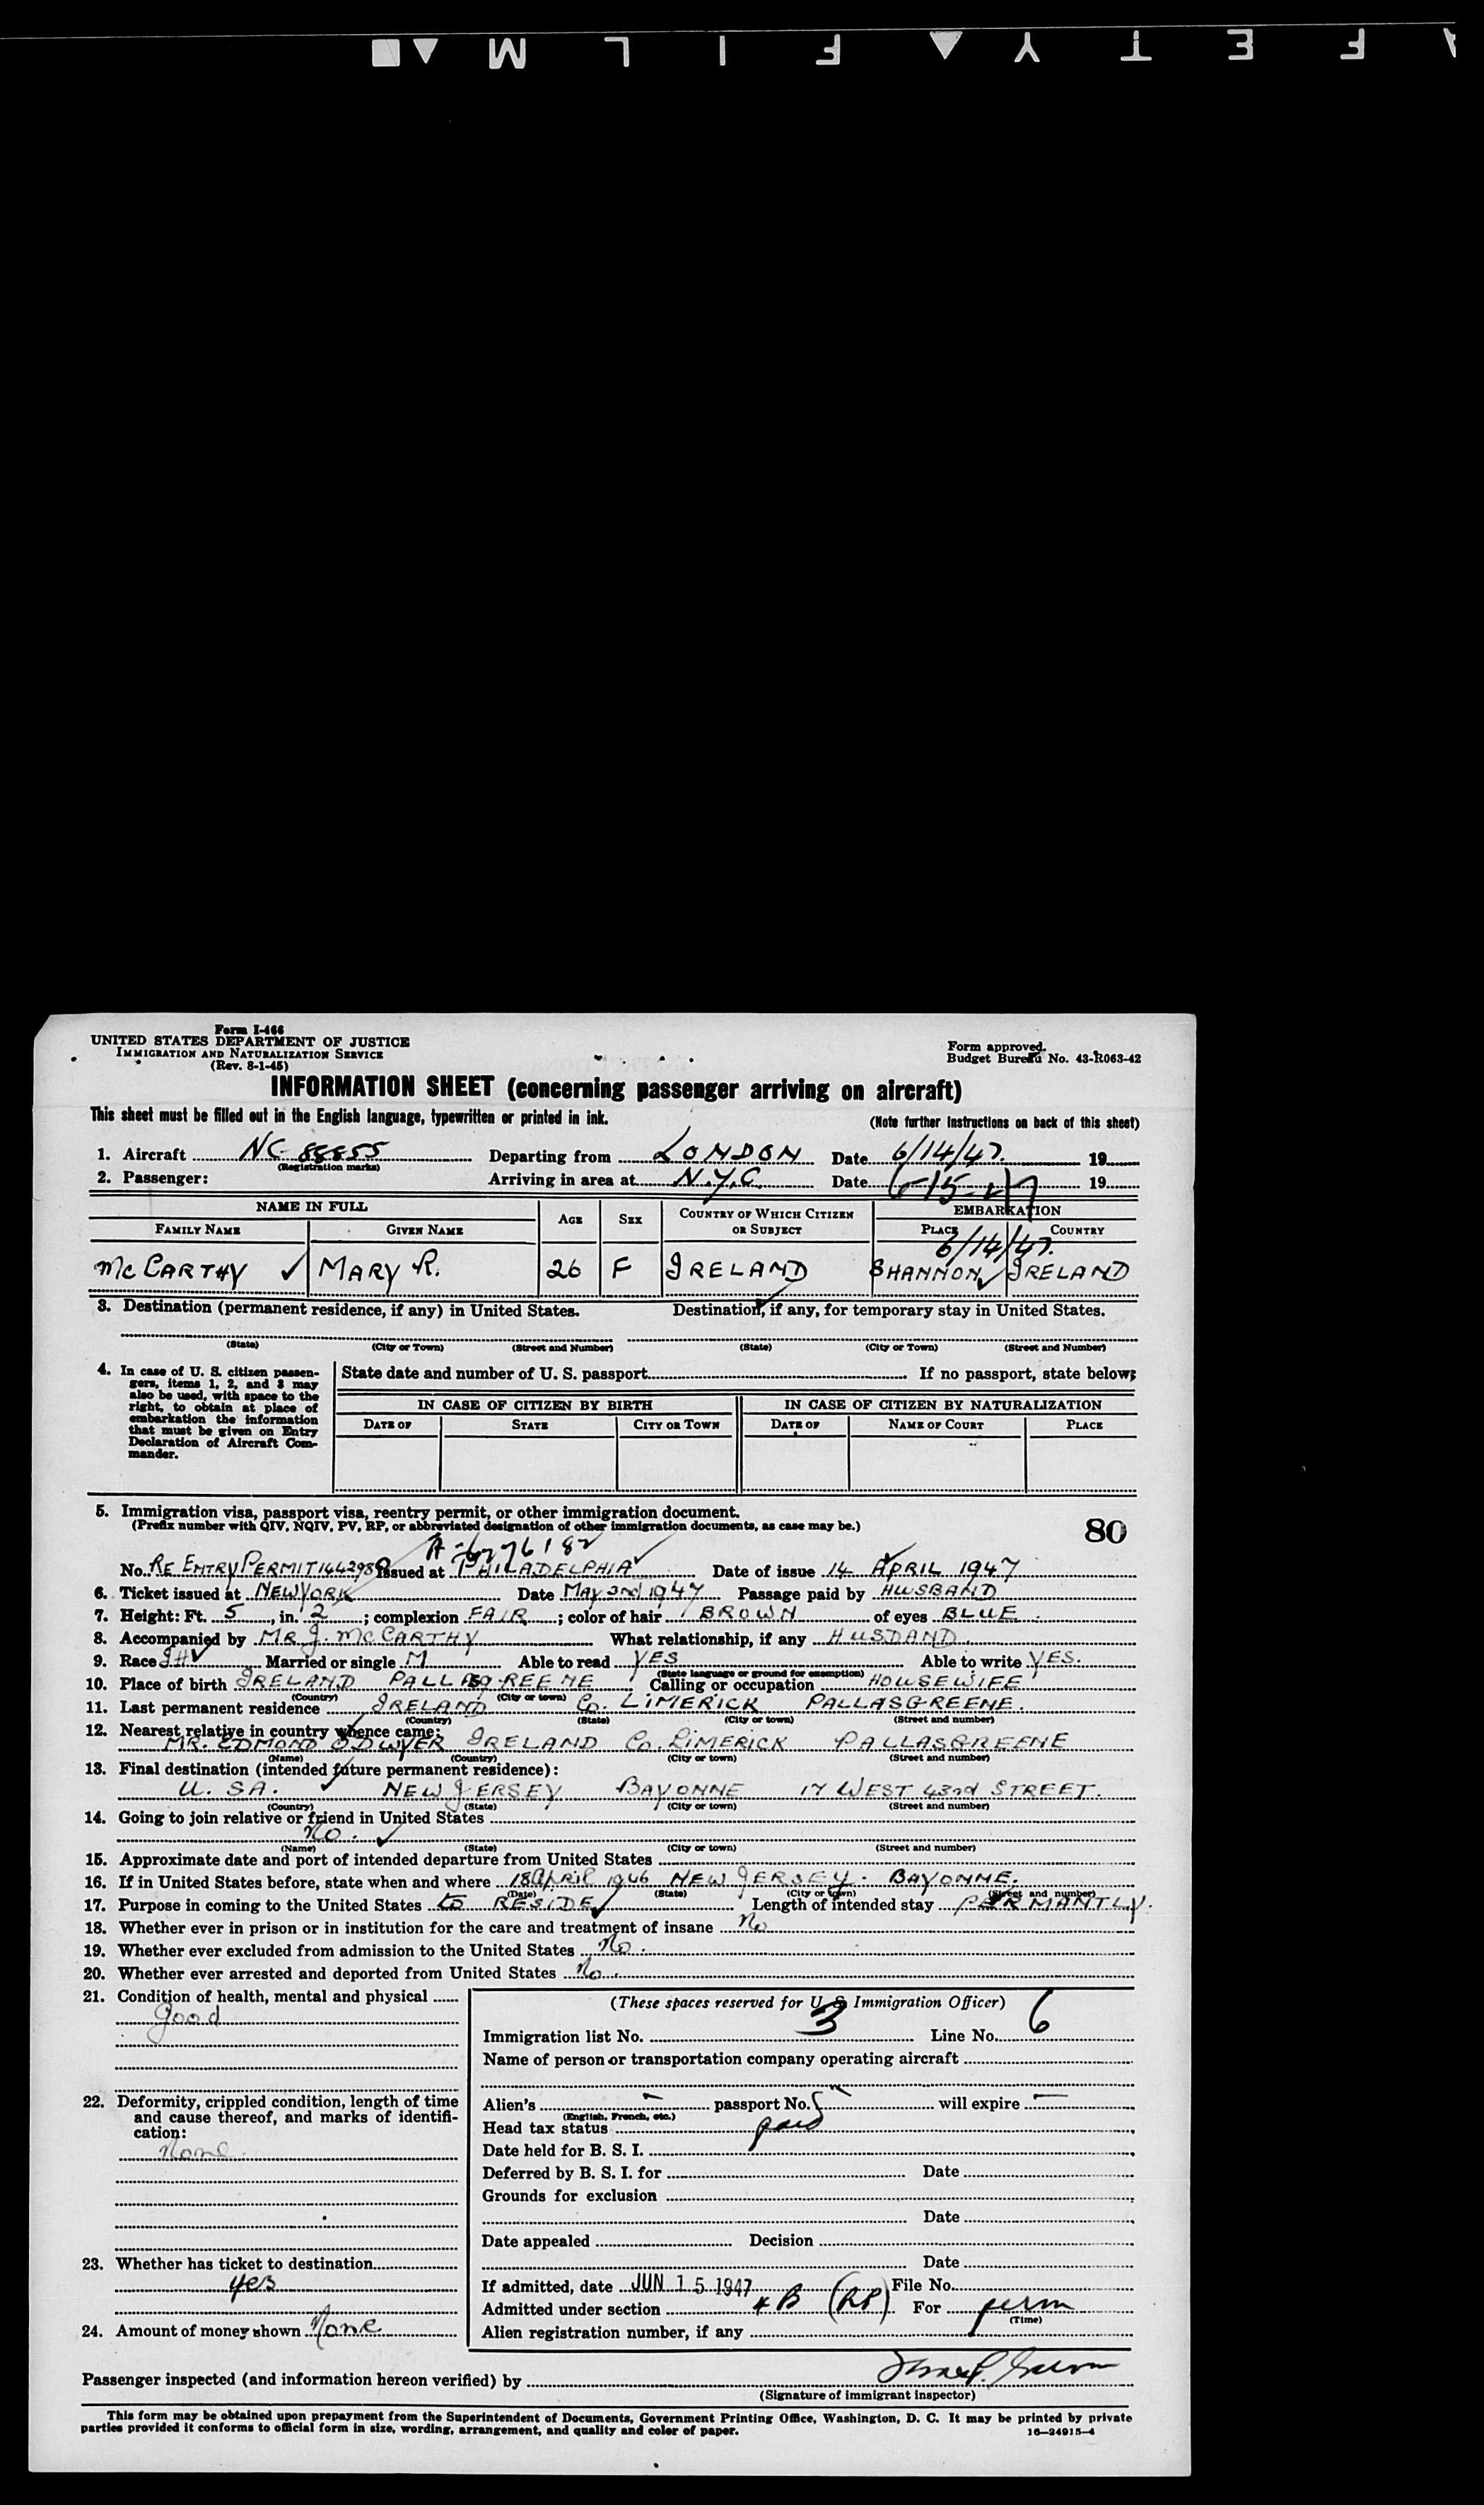 SAFETY▲FILM▲■
Form I-466
UNITED STATES DEPARTMENT OF JUSTICE
IMMIGRATION AND NATURALIZATION SERVICE
(Rev. 8-1-45)
Form approved.
Budget Bureau No. 43-R063-42
INFORMATION SHEET (concerning passenger arriving on aircraft)
This sheet must be filled out in the English language, typewritten or printed in ink.
(Note further instructions on back of this sheet)
1. Aircraft NC-88855 Departing from LONDON Date 6/14/47. 19
(Registration marks)
2. Passenger: Arriving in area at N.Y.C. Date 6-15-47 19
NAME IN FULL AGE SEX COUNTRY OF WHICH CITIZEN OR SUBJECT EMBARKATION
FAMILY NAME GIVEN NAME PLACE COUNTRY
6/14/47.
McCARTHY ✓ MARY R. 26 F IRELAND SHANNON ✓ IRELAND
3. Destination (permanent residence, if any) in United States. Destination, if any, for temporary stay in United States.
(State) (City or Town) (Street and Number) (State) (City or Town) (Street and Number)
4. In case of U. S. citizen passen-
gers, items 1, 2, and 3 may
also be used, with space to the
right, to obtain at place of
embarkation the information
that must be given on Entry
Declaration of Aircraft Com-
mander.
State date and number of U. S. passport If no passport, state below:
IN CASE OF CITIZEN BY BIRTH IN CASE OF CITIZEN BY NATURALIZATION
DATE OF STATE CITY OR TOWN DATE OF NAME OF COURT PLACE
5. Immigration visa, passport visa, reentry permit, or other immigration document.
(Prefix number with QIV, NQIV, PV, RP, or abbreviated designation of other immigration documents, as case may be.)
80
No. RE ENTRY PERMIT 1442980 Issued at PHILADELPHIA ✓ Date of issue 14 APRIL 1947
6. Ticket issued at NEWYORK Date MAY 2nd 1947 Passage paid by HUSBAND
7. Height: Ft. 5, in. 2; complexion FAIR; color of hair BROWN of eyes BLUE.
8. Accompanied by MR J. McCARTHY What relationship, if any HUSDAND.
9. Race IH ✓ Married or single M Able to read YES Able to write YES.
(State language or ground for exemption)
10. Place of birth IRELAND PALLASGREENE Calling or occupation HOUSEWIFE
(Country) (City or town)
11. Last permanent residence IRELAND Co. LIMERICK PALLASGREENE.
(Country) (State) (City or town) (Street and number)
12. Nearest relative in country whence came:
MR. EDMOND O DWYER IRELAND Co. LIMERICK PALLASGREENE
(Name) (Country) (City or town) (Street and number)
13. Final destination (intended future permanent residence):
U. S A. NEW JERSEY BAYONNE 17 WEST 43rd STREET.
(Country) (State) (City or town) (Street and number)
14. Going to join relative or friend in United States
No. ✓
(Name) (State) (City or town) (Street and number)
15. Approximate date and port of intended departure from United States
16. If in United States before, state when and where 18 April 1946 NEW JERSEY. BAYONNE.
(Date) (State) (City or town) (Street and number)
17. Purpose in coming to the United States to RESIDE ✓ Length of intended stay PERMANTLY.
18. Whether ever in prison or in institution for the care and treatment of insane No
19. Whether ever excluded from admission to the United States No.
20. Whether ever arrested and deported from United States No.
21. Condition of health, mental and physical
good
22. Deformity, crippled condition, length of time
and cause thereof, and marks of identifi-
cation:
None
23. Whether has ticket to destination
yes
24. Amount of money shown None
(These spaces reserved for U. S. Immigration Officer)
Immigration list No. 3 Line No. 6
Name of person or transportation company operating aircraft
Alien's passport No. will expire
(English, French, etc.)
Head tax status paid
Date held for B. S. I.
Deferred by B. S. I. for Date
Grounds for exclusion
Date
Date appealed Decision
Date
If admitted, date JUN 15 1947 File No.
Admitted under section 4 B (RP) For perm
(Time)
Alien registration number, if any
Passenger inspected (and information hereon verified) by
(Signature of immigrant inspector)
This form may be obtained upon prepayment from the Superintendent of Documents, Government Printing Office, Washington, D. C. It may be printed by private
parties provided it conforms to official form in size, wording, arrangement, and quality and color of paper.
16—24915-4